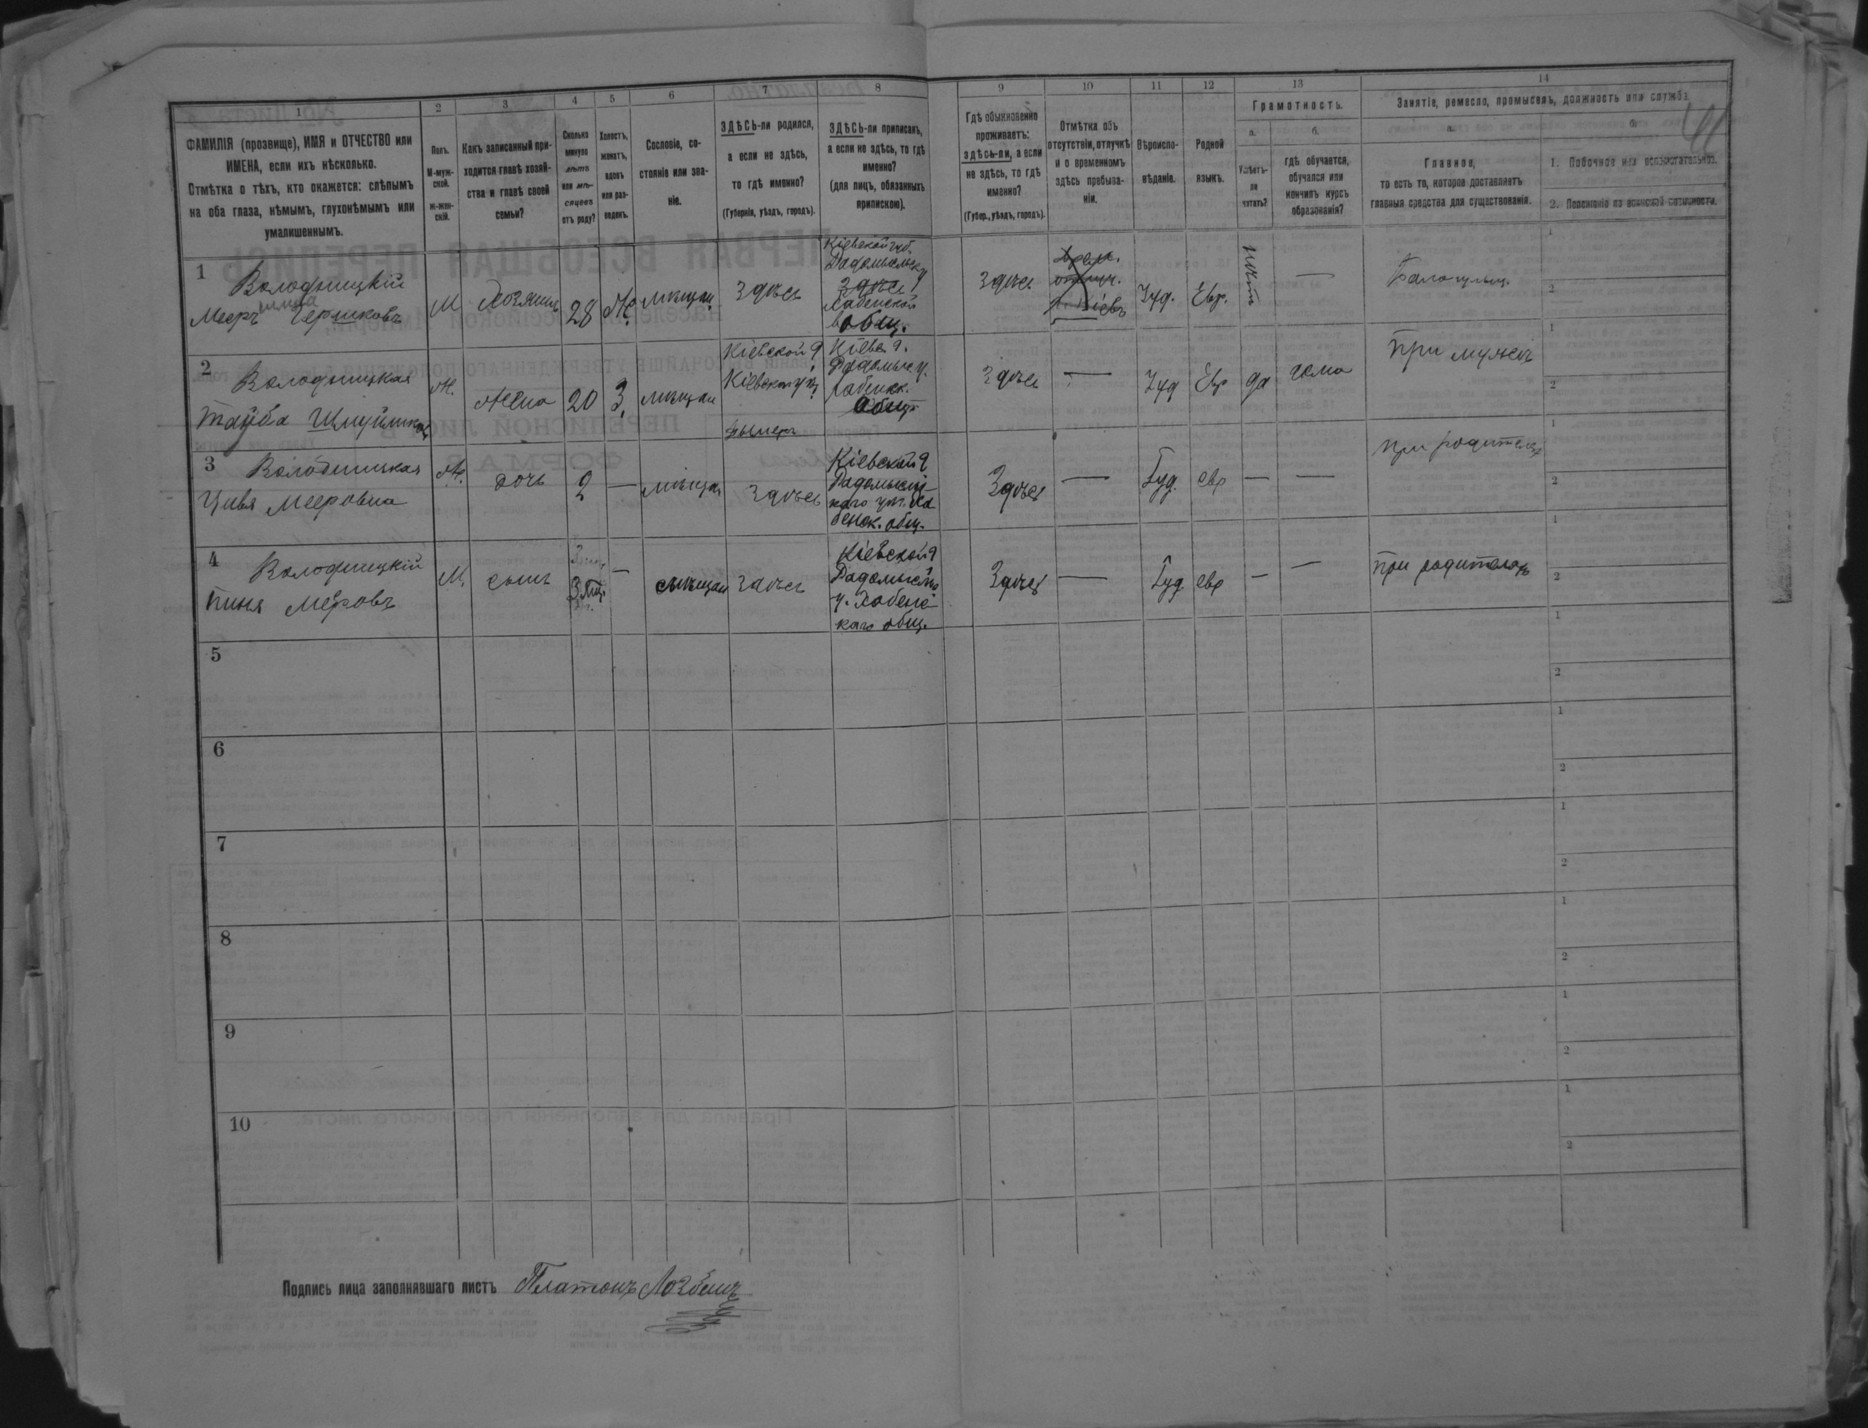 1
2
3
4
5
6
7
8
9
10
11
12
13
14
ФАМИЛІЯ (прозвище), ИМЯ и ОТЧЕСТВО или
ИМЕНА, если ихъ нѣсколько.
Отмѣтка о тѣхъ, кто окажется: слѣпымъ
на оба глаза, нѣмымъ, глухонѣмымъ или
умалишеннымъ.
Полъ.
М-муж-
ской.
ж-жен-
скій.
Какъ записанный при-
ходится главѣ хозяй-
ства и главѣ своей
семьи?
Сколько
минуло
лѣтъ
или мѣ-
сяцевъ
отъ роду?
Холостъ,
женатъ,
вдовъ
или раз-
веденъ.
Сословіе, со-
стояніе или зва-
ніе.
ЗДѢСЬ-ли родился,
а если не здѣсь,
то гдѣ именно?
(Губернія, уѣздъ, городъ).
ЗДѢСЬ-ли приписанъ,
а если не здѣсь, то гдѣ
именно?
(для лицъ, обязанныхъ
припискою).
Гдѣ обыкновенно
проживаетъ:
здѣсь-ли, а если
не здѣсь, то гдѣ
именно?
(Губер., уѣздъ, городъ).
Отмѣтка объ
отсутствіи, отлучкѣ
и о временномъ
здѣсь пребыва-
ніи.
Вѣроиспо-
вѣданіе.
Родной
языкъ.
Грамотность.
а.
б.
Умѣетъ-
ли
читать?
гдѣ обучается,
обучался или
кончилъ курсъ
образованія?
Занятіе, ремесло, промыселъ, должность или служба.
а.
б
Главное,
то есть то, которое доставляетъ
главныя средства для существованія.
1. Побочное или вспомогательное.
2. Положеніе по воинской повинности.
1
Володницкій
Мееръ Гершковъ
М
Хозяинъ
28
Ж.
мѣщан.
Здѣсь
Кіевской губ.
Радомыльск. у
Хабенской
общ.
Здѣсь
Іуд.
Евр.
—
Балогульщ.
2
Володницкая
Тауба Шмуйлик
Ж.
Жена
20
З.
мѣщан
Кіевской г
Кіевскаго у
Дымеръ
Кіевс. г.
Радомыс. у.
Хабенск.
Общ
Здѣсь
—
Іуд
Евр
да
дома
При мужѣ
3
Володницкая
Цивя Мееровна
Ж.
дочь
2
—
мѣщан
Здѣсь
Кіевской г
Радомысль-
каго у. Ха
бенск. общ.
Здѣсь
—
Іуд
евр
—
—
при родителях
4
Володницкій
Пиня Меѣровъ
М.
сынъ
3 м.
—
мѣщан
Здѣсь
Кіевской г
Радомысль
у. Хабенс
каго общ.
Здѣсь
—
Іуд
евр
—
—
При родителях
5
6
7
8
9
10
Подпись лица заполнявшаго листъ Платонъ